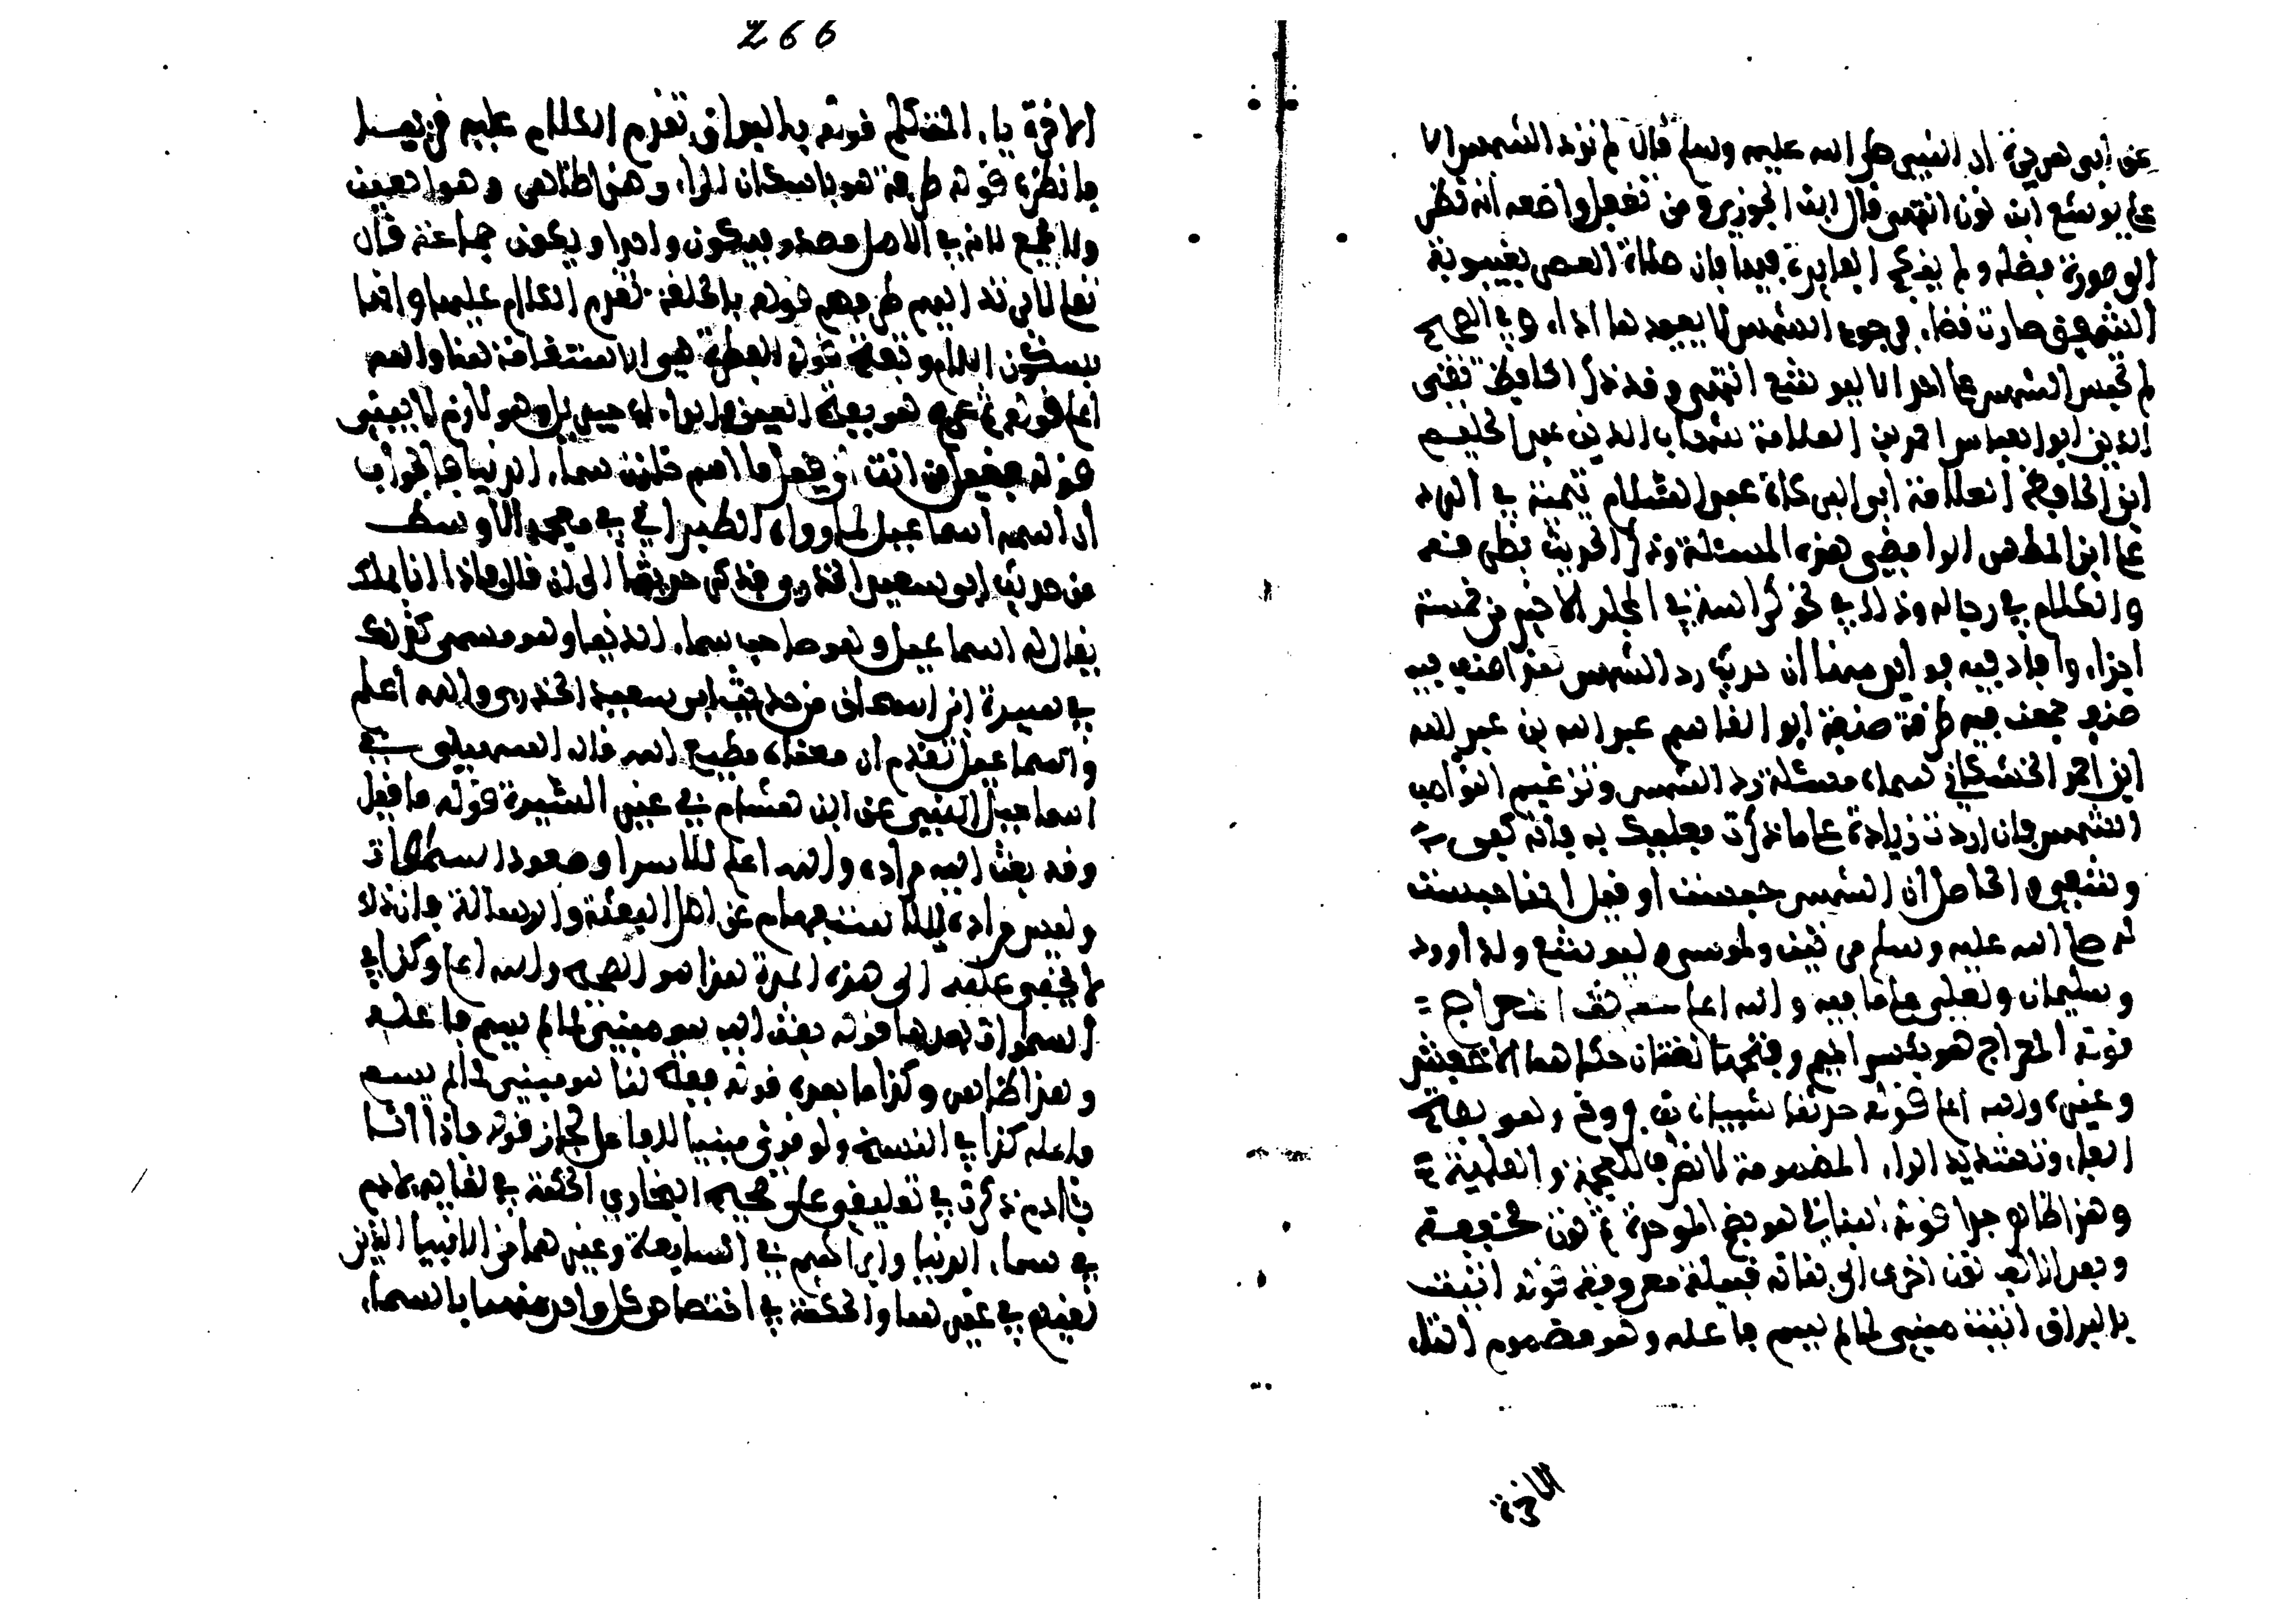 عن ابي هريرة ان النبي صلى الله عليه وسلم قال لم ترد الشمس الا
على يوشع ابن نون انتهى قال ابن الجوزي ومن تغفل واضعه انه نظر
الى صورة فضله ولم يفكر العايدة فيها فان صلاة العصر بغيبوبة
الشمس صارت قضاء فرجوع الشمس لا يعيدها اداء وفي الصحيح
لم تحبس الشمس على احد الا ليوشع انتهى وقد ذكر الحافظ تقي
الدين ابو العباس احمد بن العلامة شهاب الدين عبد الحليم
ابن الحافظ العلامة ابي البركات عبد السلام تيمية في الرد
على ابن المطهر الرافضي هذه المسئلة وذكر الحديث بطرقه
والكلام في رجاله وذلك في نحو كراسة في المجلد الاخير من خمسة
اجزاء وافاد فيه فوايد منها ان حديث رد الشمس بعد اخذ فيه
صنف جمعت فيه طرقه صنفه ابو القاسم عبد الله بن عبد الله
ابن احمد الحسكاني سماه مسئلة رد الشمس وترغيم النواصب
الشمس فان اردت زيادة على ما ذكرت فعليك به فانه
والحاصل ان الشمس حبست او قيل انها حبست
له صلى الله عليه وسلم مرتين ولموسى وليوشع ولداوود
وسليمان ولعلي على ما فيه والله اعلم المعراج
قوله المعراج هو بكسر الميم وفتحها لغتان حكاهما الاخفش
وغيره والله اعلم قوله حدثنا شيبان بن فروخ هو بفتح
الفاء وتشديد الراء المضمومة لا تصرف للعجمة والعلمية
وهذا ظاهر جدا قوله البناني هو بضم الموحدة ثم نون مخففة
وبعد الالف نون اخرى الى بنانة قبيلة معروفة قوله اتيت
بالبراق اتيت مبني لما لم يسم فاعله وهو مضموم التاء
الاخرة
266
الاخرة ياء المتكلم قوله بالبراق تقدم الكلام عليه قريبا
فانظره قوله طرفه هو باسكان الراء وهذا ظاهر وهو العين
ولا يجمع لانه في الاصل مصدر فيكون واحدا ويكون جماعة قال
تعالى لا يرتد اليهم طرفهم قوله بالحلقة تقدم الكلام عليها وانها
بسكون اللام وتفتح قوله الفطرة هي الاستقامة هنا والله
اعلم قوله ثم عرج هو بفتح العين والراء اي جبريل وهو لازم لا يبنى
قوله فقيل من انت ان قيل ما اسم خازن سماء الدنيا فالجواب
ان اسمه اسماعيل لما رواه الطبراني في معجمه الاوسط
من حديث ابي سعيد الخدري فذكر حديثا الى ان قال فاذا انا بملك
يقال له اسماعيل وهو صاحب سماء الدنيا وهو مسمى كذلك
في سيرة ابن اسحاق من حديث ابي سعيد الخدري والله اعلم
واسماعيل تقدم ان معناه مطيع الله قاله السهيلي في
اسماعيل النبي عن ابن هشام في غير السيرة قوله ما قيل
وقد بعث اليه مراده والله اعلم للاسرا وصعود السماوات
وليس مراده الاستفهام عن اصل البعثة والرسالة فان ذلك
لا يخفى عليه الى هذه المدة هذا هو الصحيح والله اعلم وكذا في
السماوات بعدها قوله بعث اليه هو مبني لما لم يسم فاعله
وهذا ظاهر وكذا ما بعده قوله ففتح لنا هو مبني لما لم يسم
فاعله كذا في النسخ ولو قرئ مبنيا للفاعل لجاز قوله فاذا انا
بآدم ذكرت في تعليقي على صحيح البخاري الحكمة في لقايه لادم
في سماء الدنيا وابراهيم في السابعة وغيرهما من الانبيا الذين
لقيهم في غيرهما والحكمة في اختصاص كل واحد منهما بالسماء